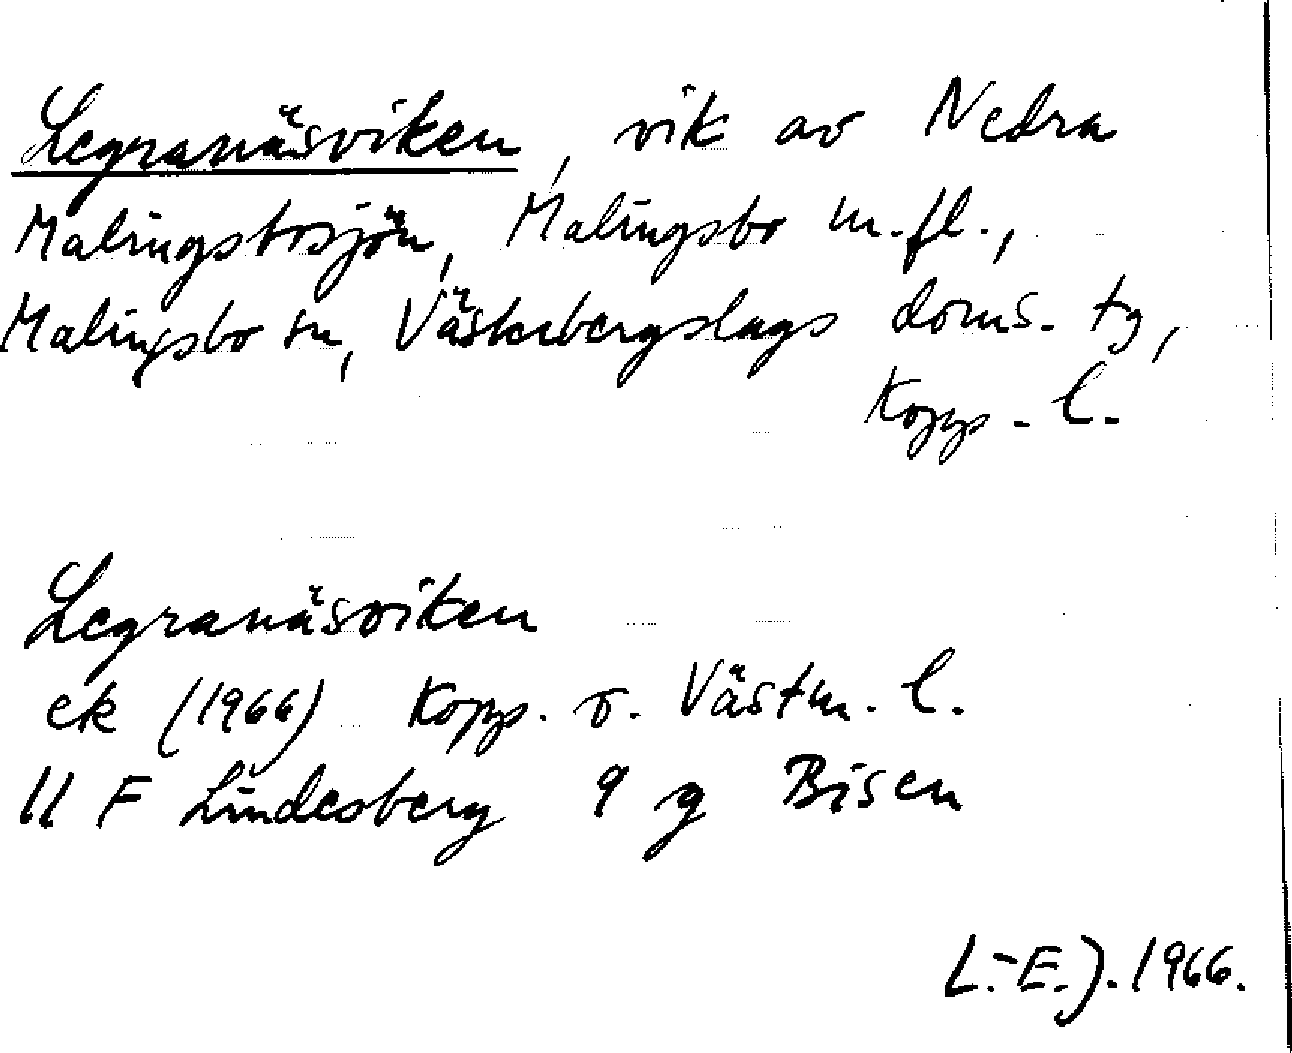 Legranäsviken, vik av Nedra
Malingsbosjön, Malingsbo m.fl.,
Malingsbo sn, Västerbergslags doms. tg,
Kopp. l.
Legranäsviken
ek (1966) Kopp. o. Västm. l.
11 F Lindesberg 9 g Bisen
L.-E.J. 1966.